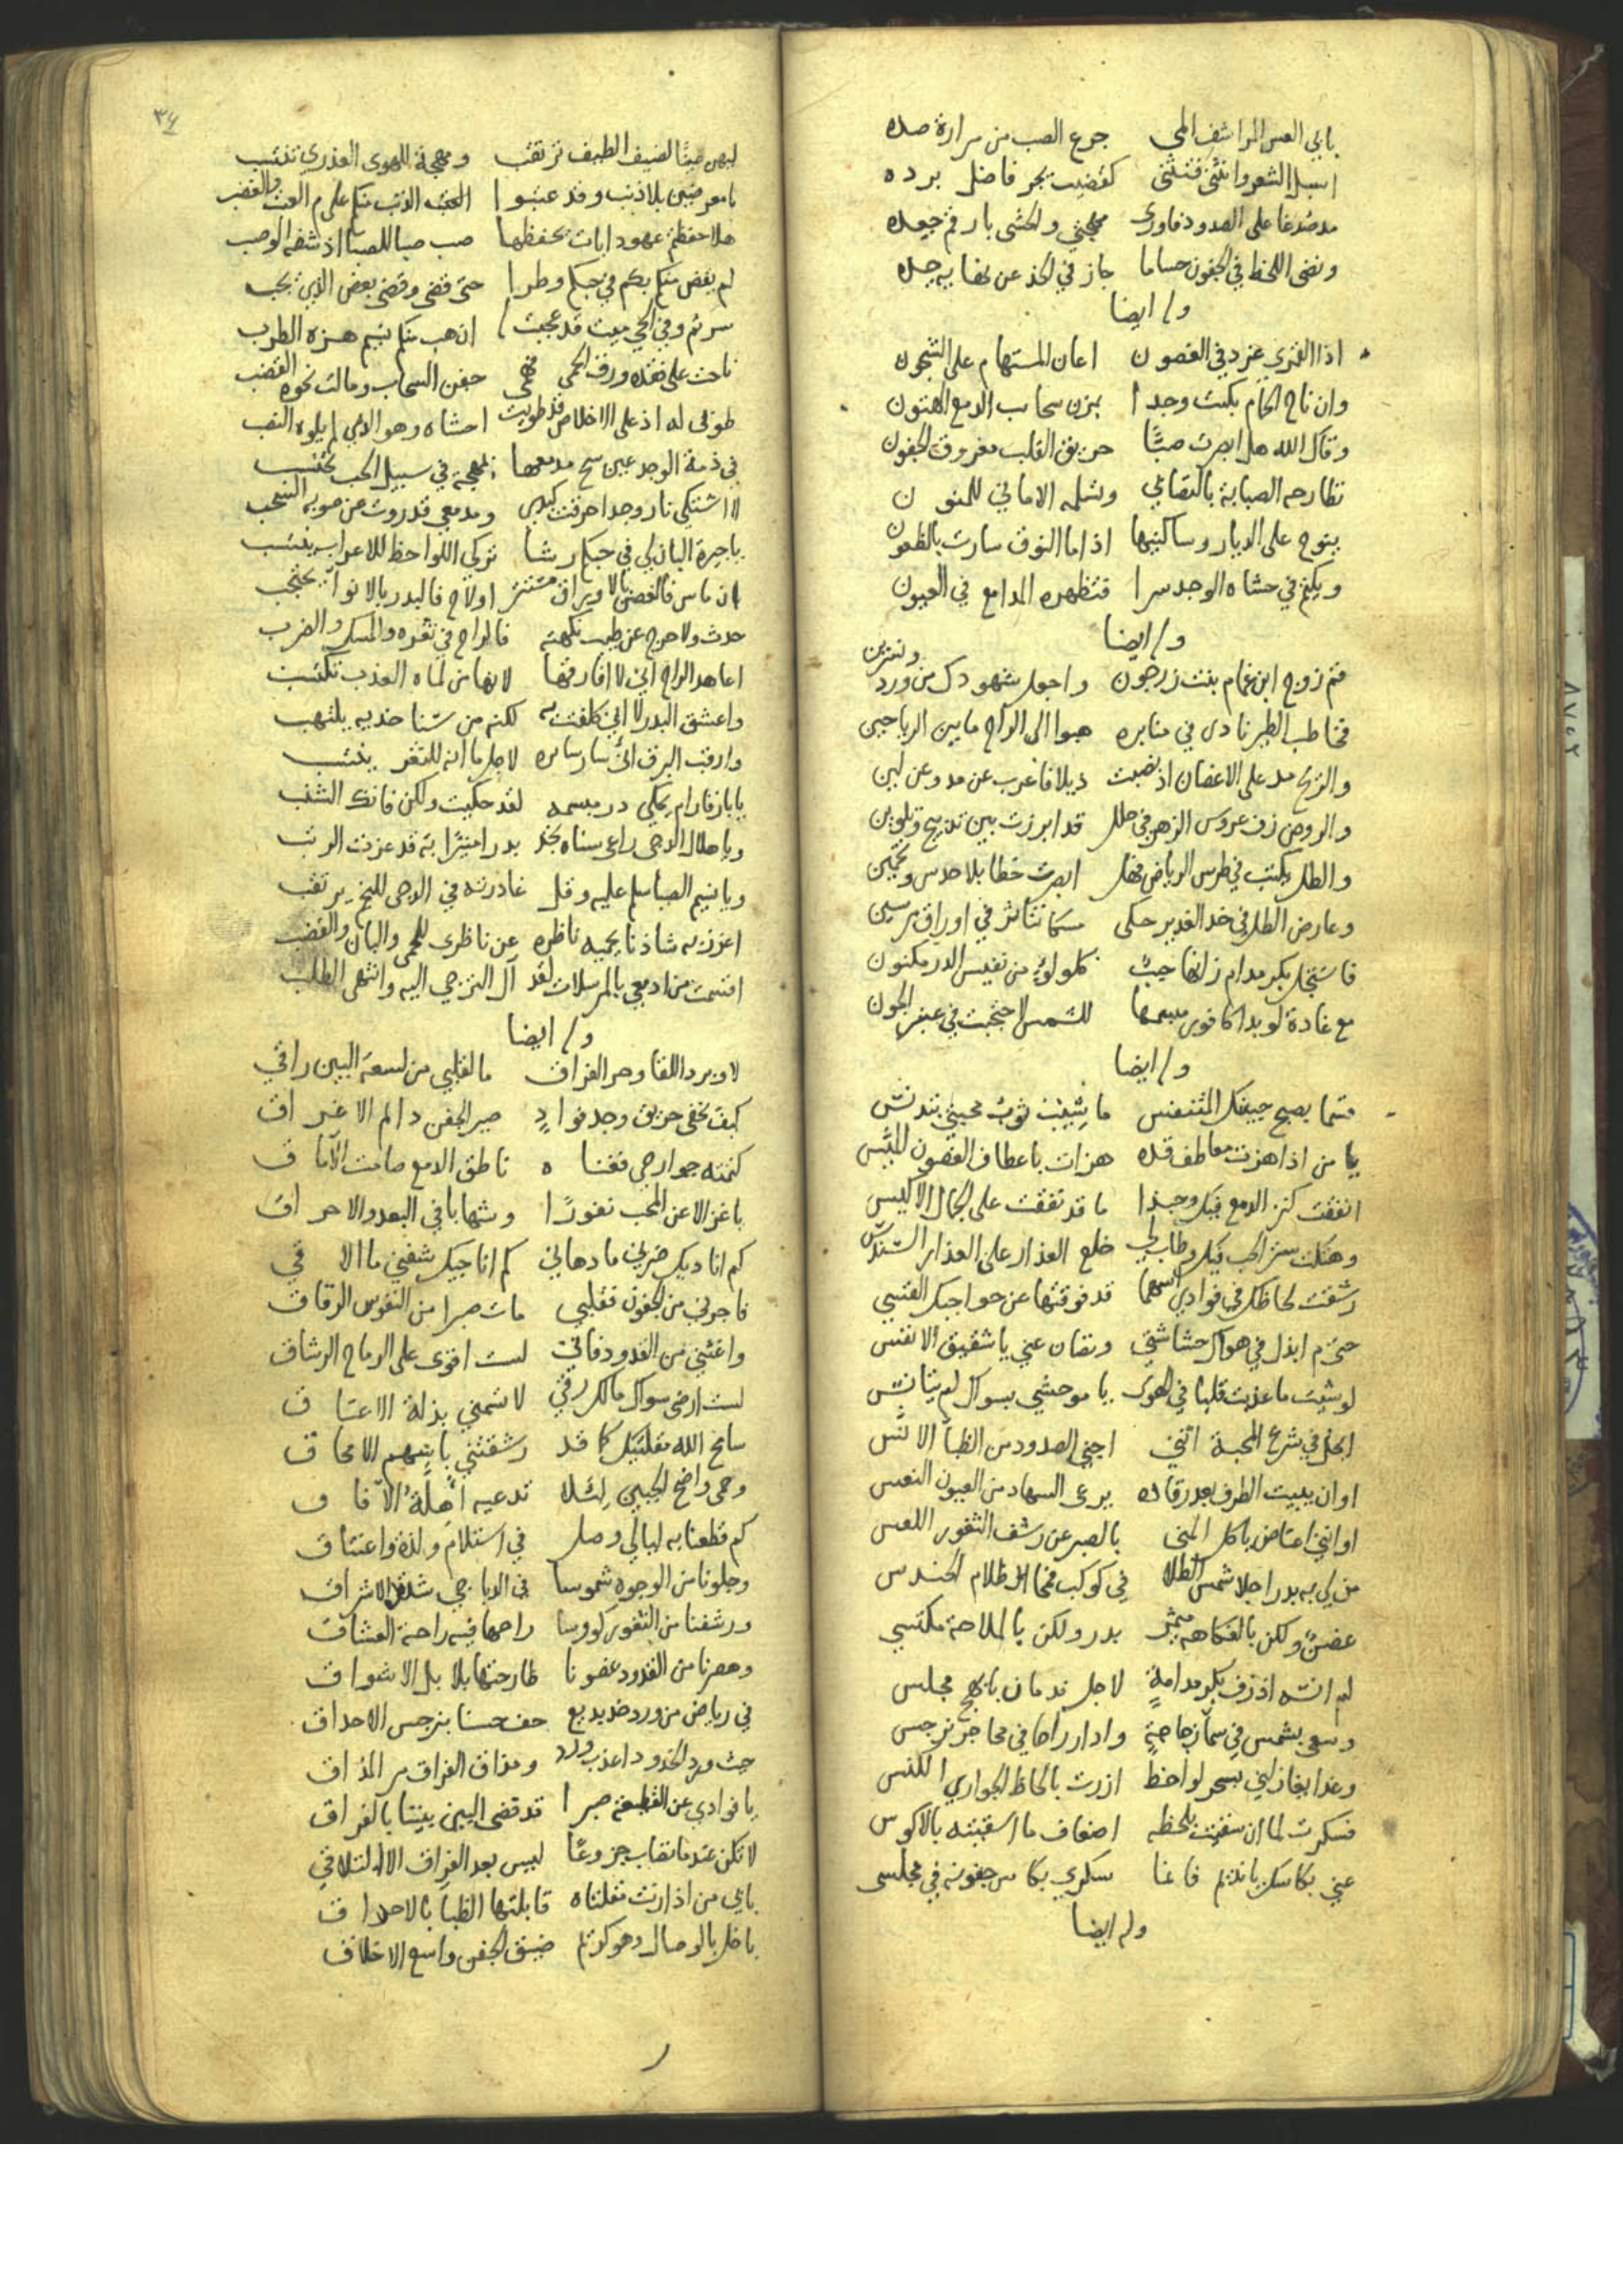 بابي العس المراشف المى جرع الصب من مرارة صده
اسبل الشعر وانثنى فتثنى كقضيب يجر فاضل برده
مد صدغا على الخدود فاورى مهجتي والحشى بارقم جعده
ونضى اللحظ في الجفون حساما جاز في الحد عن مضا به حده
وله ايضا
اذا القمري غرد في الغصون اعان المستهام على الشجون
وان ناح الحمام بكيت وجدا بمزن سحائب الدمع الهتون
وقال الله هل ابصرت صبًّا حريق القلب مغروق الجفون
تطارحه الصبابة بالتصابي وتسلمه الاماني للمنون
ينوح على الديار وساكنيها اذا ما النوق سارت بالظعون
ويكتم في حشاه الوجد سرا فتظهره المدامع في العيون
وله ايضا
قم زوج ابن غمام بنت زرجون واجعل شهودك من ورد ونسرين
فخاطب الطير نادى في منابره هبوا الى الراح ما بين الرياحين
والريح مد على الاغصان اذ نصبت ذيلا فاعرب عن مد وعن لين
والروض زف عروس الزهر في حلل قد ابرزت بين تدبيج وتلوين
والطل يكتب في طرس الرياض فهل ابصرت خطا بلا حدس وتخمين
وعارض الطل في خد الغدير حكى مسكا تناثر في اوراق نسرين
فاستجل بكر مدام زانها حبب كلولؤ من نفيس الدر مكنون
مع غادة لو بدا كافور مبسمها للشمس لاحتجبت في عنبر الجون
وله ايضا
قسما بصبح جبينك المتنفس ما شيبت ثوب محبتي بتدنس
يا من اذا هزت معاطف قده هزات باعطاف الغصون الميس
انفقت كنز الدمع فيك وحبذا ما قد نفقت على الجمال الاكيس
وهتكت ستر الحب فيك وطاب لي خلع العذار على العذار السندسي
رشقت لحاظك في فوادي اسهما قد فوقتها عن حواجبك القسي
حتى م ابذل في هواك حشاشتي وتصان عني يا شقيق الانفس
لو شئت ما عذبت قلبا في الهوى يا موحشي بسواك لم يتانس
ايحل في شرع المحبة انني اجني الصدود من الظبا الانس
او ان يبيت الطرف بعد رقاده يرعى السهاد من العيون النعس
او انني اعتاض يا كل المنى بالصبر عن رشف الثغور اللعس
من لي به بدرا جلا شمس الطلا في كوكب فمحا ظلام الحندس
غصن ولكن بالفكاهة مثمر بدر ولكن بالملاحة مكتسي
لم انسه اذ زف بكر مدامة لاجل ندمان بابهج مجلس
وسعى بشمس في سما زجاجة وادار راحا في محاجر نرجس
وغدا يغازلني بسحر لواحظ ازرت بالحاظ الجواري الكنس
فسكرت لما ان سقيت بلحظه اضعاف ما اسقيته بالاكوس
عني بكاسك يا نديم فانما سكري بكاس جفونه في مجلسى
وله ايضا
٣٤
ليهن عينًا لضيف الطيف ترتقب ومهجة للهوى العذري تنتسب
يا معرضين بلا ذنب وقد عتبوا الحب الذنب منكم على م العتب والغضب
هلا حفظتم عهودا بات يحفظها صب صبا للصبا اذ شفه الوصب
لم يقض منكم بكم في حبكم وطرا حتى قضى وقضى بعض الذي يجب
سرتم وفي الحي ميت قد عجبت له ان هب منكم نسيم هزه الطرب
ناحت على فقده ورق الحمى فهمى جفن السحاب ومالت نحوه القضب
طوبى له اذ على الاخلاص قد طويت احشاه وهو الذي لم يلوه النصب
في ذمة الوجد عين سح مدمعها ومهجة في سبيل الحب تحتسب
لا اشتكي نار وجد احرقت كبدى ومدمعي قد روت عن صوبه السحب
يا جيرة البان لي في حبكم رشا تركي اللواحظ للاعراب ينتسب
ان ماس فالغصن بالاوراق مستتر او لاح فالبدر بالانواء يحتجب
حدث ولا حرج عن طيب نكهته فالراح في ثغره والمسك والضرب
اعاهد الراح اني لا افارقها لانها من لماه العذب تكتسب
واعشق البدر لا اني كلفت به لكنه من سنا خديه يلتهب
وارقب البرق انى سار سائره لاجل ما انه للثغر ينتسب
يا بارقا رام يحكي در مبسمه لقد حكيت ولكن فاتك الشنب
ويا هلال الدجى راعى سناه تجد بدرا منيرًا به قد عزت الرتب
ويا نسيم الصبا سلم عليه وقل غادرته في الدجى للنجم يرتقب
اعزز به شاذنا يحميه ناظره عن ناظري للحمى والبان والقضب
اقسمت من ادمعي بالمرسلات لقد آل الترجي اليه وانتهى الطلب
وله ايضا
لا وبرد اللقا وحر الفراق ما لقلبي من لسعة البين راقي
كيف تخفى حريق وجد فوادٍ صير الجفن دائم الاغراق
كتمته جوارحي فقضاه ناطق الدمع صامت الآماق
يا غزالا عن المحب نفورًا وشهابا في البعد والاحراق
كم اناديك ضرني ما دهاني كم اناجيك شفني ما الاقي
فاجرني من الجفون فقلبي مات صبرا من النفوس الرقاق
واغثني من القدود فاني لست اقوى على الرماح الرشاق
لست ارضى سواك مالك رقي لا تسمني بذلة الاعتاق
سامح الله مقلتيك كما قد رشقتني باسهم الامحاق
وحمى واضح الجبين لئلا تدعيه اهلة الآفاق
كم قطعنا به ليالي وصل في استلام ولذة واعتناق
وجلونا من الوجوه شموسا في الدياجي شديدة الاشراق
ورشفنا من الثغور كؤوسا راحها فيه راحة العشاق
وهصرنا من القدود غصونا طارحتها بلابل الاشواق
في رياض من ورد خد بديع حف حسنا بنرجس الاحداق
حيث ورد الخدود اعذب ورد ومذاق الفراق مر المذاق
يا فوادي عن القطيعة صبرا قد قضى البين بيننا بالفراق
لا تكن عند ما تصاب جزوعًا ليس بعد الفراق الا التلاقي
بابي من اذا رنت مقلتاه قابلتها الظبا بالاحداق
باخل بالوصال وهو كريم ضيق الجفن واسع الاخلاق